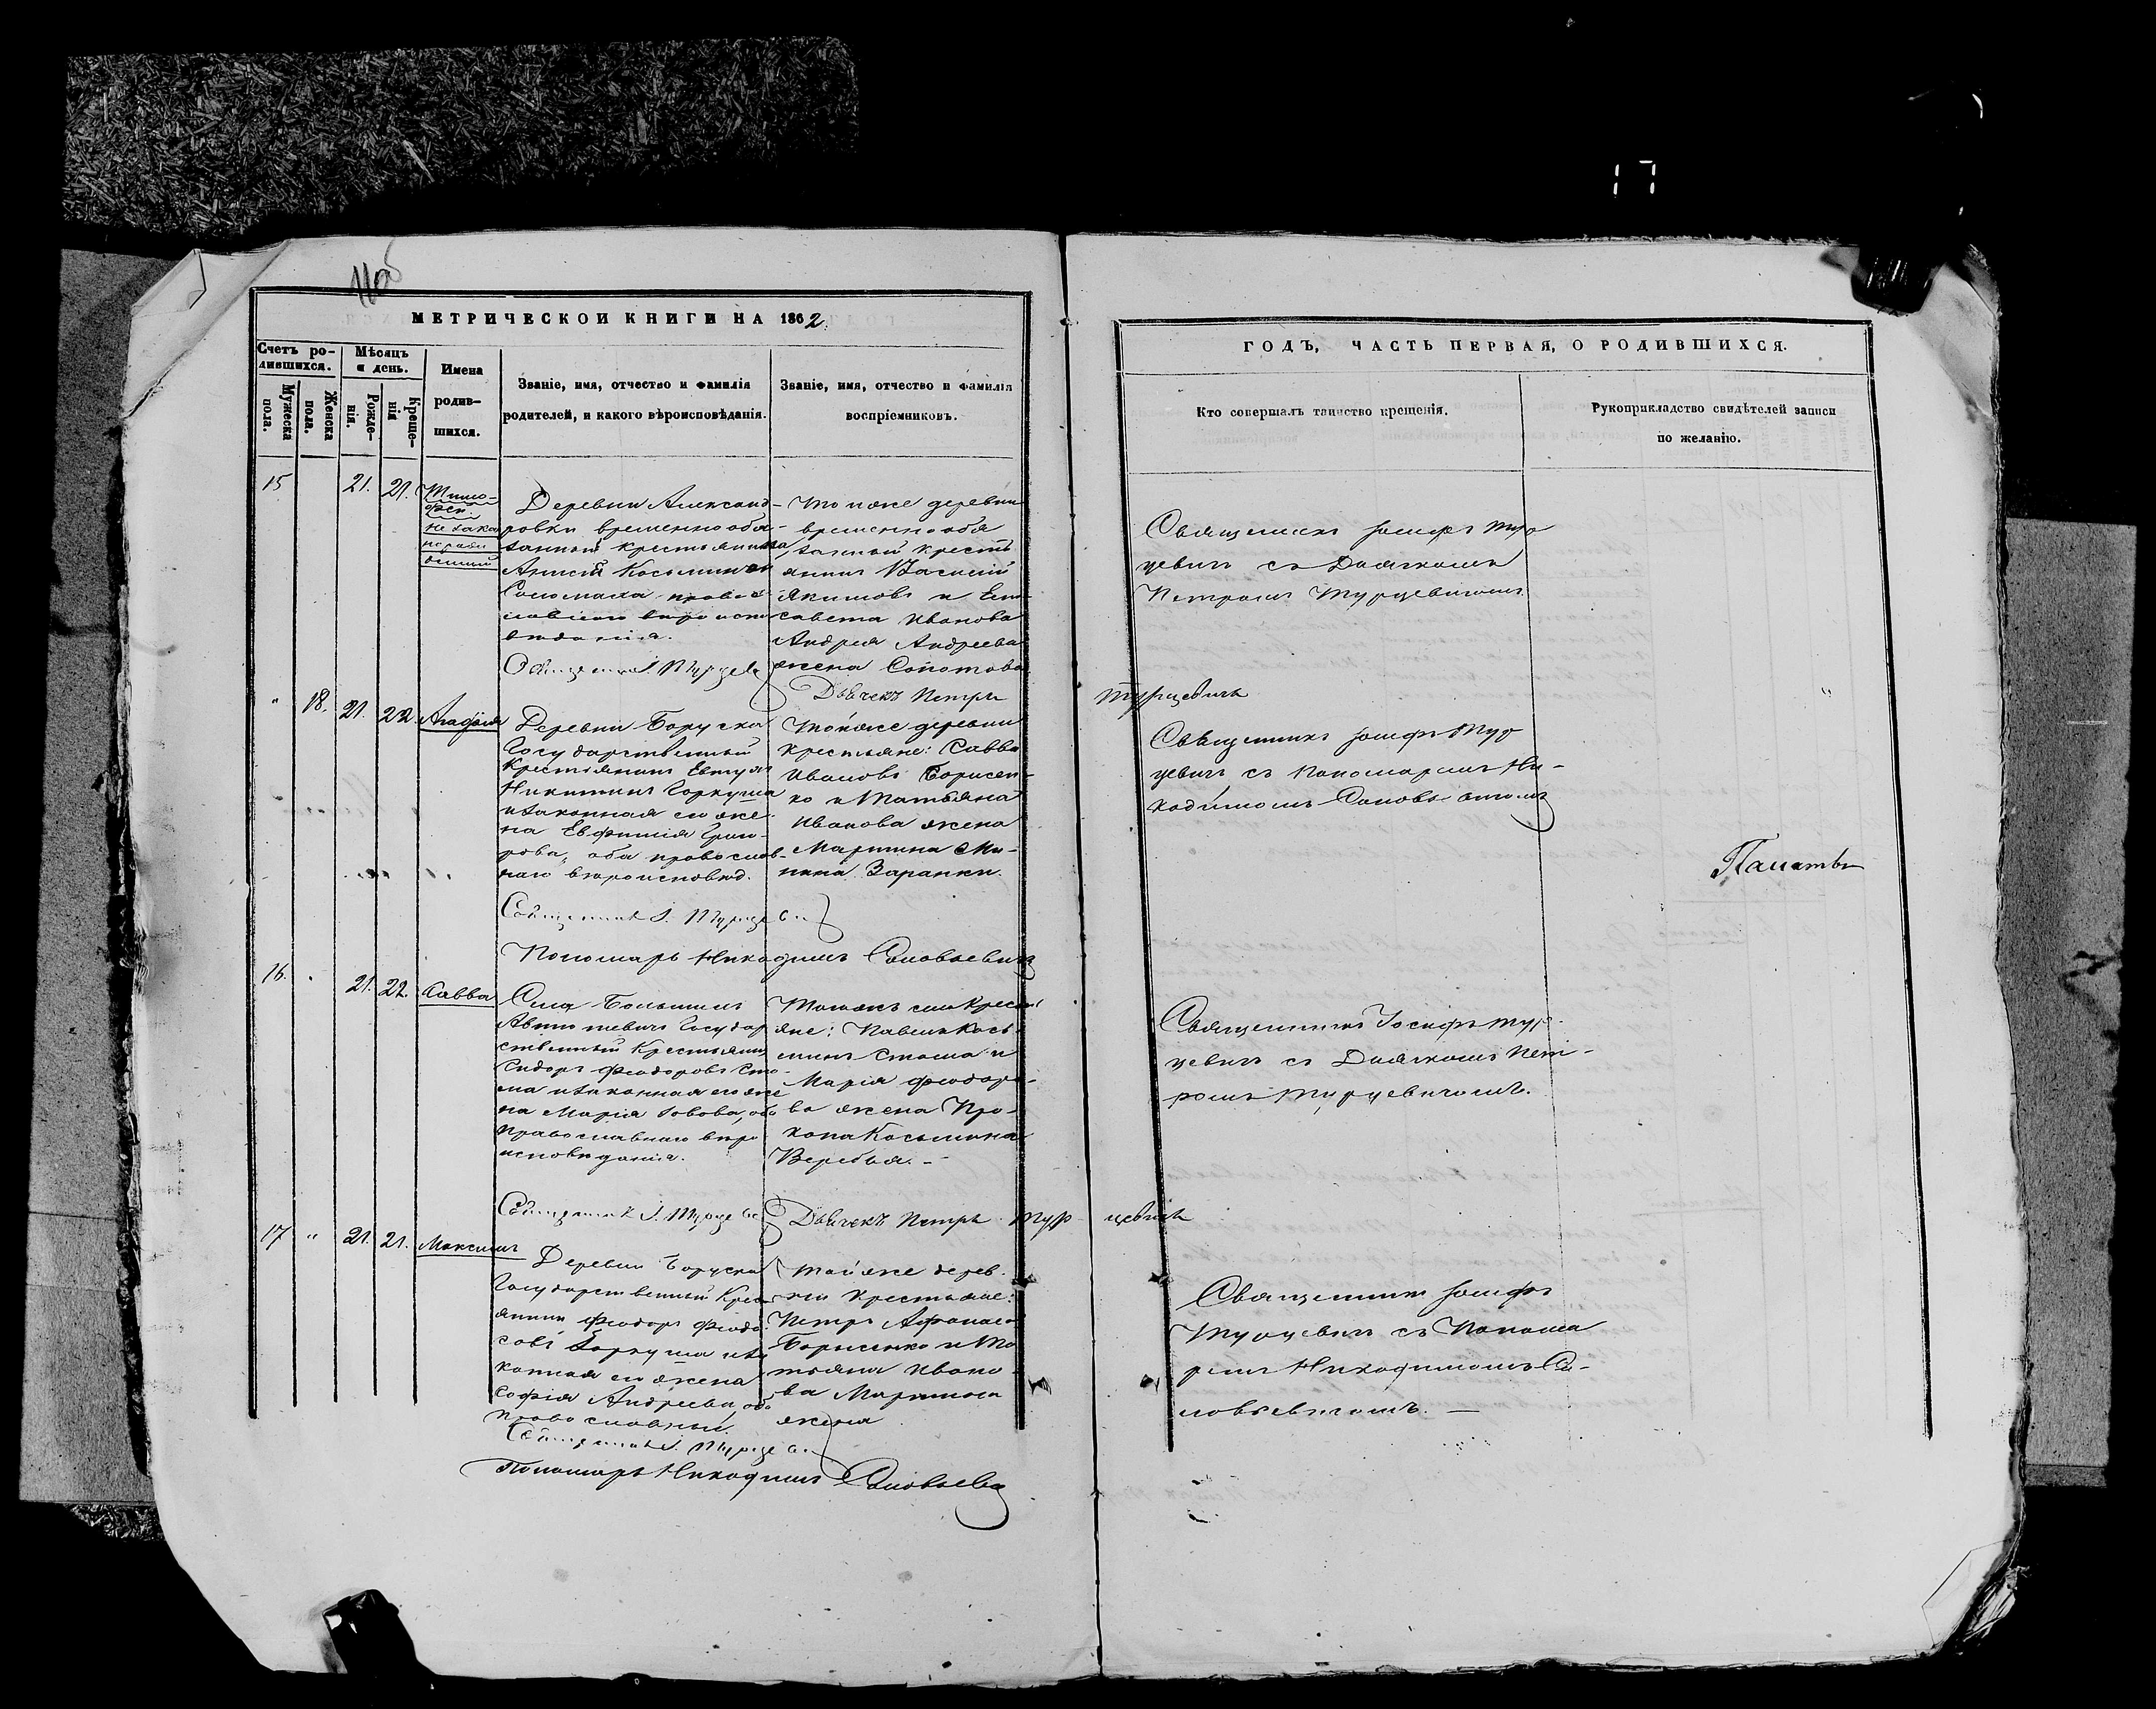 17
МЕТРИЧЕСКОЙ КНИГИ НА 1862
Счетъ родившихся.
Мужеска пола.
Женска пола.
Мѣсяцъ и день.
Рожденія.
Крещенія
Имена родившихся.
Званіе, имя, отчество и фамилія
родителей, и какого вѣроисповѣданія.
Званіе, имя, отчество и фамилія
воспріемниковъ.
15 21. 21. Тимофей
незаконорожденный
Деревни Александ-
ровки временнообя-
занный крестьянин
Косьмин
православнаго вѣроиспо-
вѣданія.
Священник І. Турцевич
Той же деревни
временнообя
занный кресть
янинъ Василій
Якимовъ и Ели
савета Иванова
Андрея Андреева
жена
Дьячекъ Петръ
Турцевичъ
18. 21. 22 Агафія
Деревни Боруска
Государственный
Крестьянинъ
Никитинъ Горкуша
и законная его же
на Евфимія Григо
рова, оба православ-
наго вѣроисповѣд.
Священник І. Турцевич
Тойже деревни
крестьяне: Савва
Ивановъ Борисен-
ко и Татьяна
Иванова жена
Мартина Ми-
нина
Пономарь Никодимъ Соловьевичъ
16. 21. 22. Савва
Села
Государ
ственный Крестьянин
Сидоръ Феодоровъ Сто
ма и законная его же
на Марія оба
православнаго вѣро
исповѣданія.
Священник І. Турцевич
Тогожъ села Крестья
не: Павелъ Кось
минъ Стома и
Марія Феодоро-
ва жена Про-
копа Косьмина
Веребья. -
Дьячекъ Петръ Тур цевичъ
17 21. 21. Максимъ
Деревни Боруска
Государственный Крест
янинъ Феодоръ Феодо
совъ Горкуша и за
конная его жена
Софія Андреева, оба
православный.
Священник І. Турцевич
Той же дерев
ни Крестьяне:
Петръ Афанасов
Борисенко и Та
тьяна Ивано
ва Мартина
жена
Пономарь Никодимъ Соловьевич
ГОДЪ, ЧАСТЬ ПЕРВАЯ, О РОДИВШИХСЯ.
Кто совершалъ таинство крещенія.
Рукоприкладство свидѣтелей записи
по желанію.
Священникъ Іосифъ Тур
цевичъ съ Дьячкомъ
Петромъ Турцевичомъ
Священникъ Іосифъ Тур
цевичъ съ Пономаремъ Ни-
кодимомъ Соловьевичомъ
Священникъ Іосифъ Тур-
цевичъ съ Дьячкомъ Пет-
ромъ Турцевичомъ.
Священникъ Іосифъ
Турцевичъ съ Понома
ремъ Никодимомъ Со-
ловьевичомъ. —